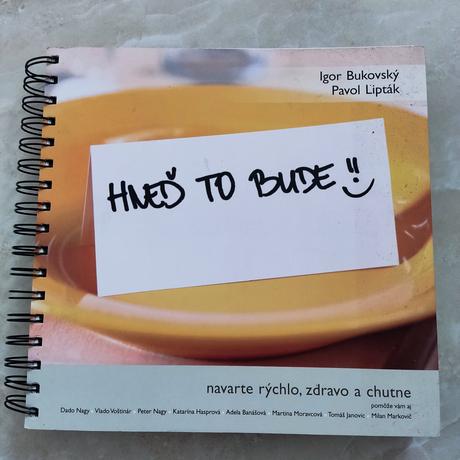 Igor Bukovský
Pavol Lipták
HNEĎ TO BUDE!!
navarte rýchlo, zdravo a chutne
pomôže vám aj
Dado Nagy Vlado Voštinár Peter Nagy Katarína Hasprová Adela Banášová Martina Moravcová Tomáš Janovic Milan Markovič